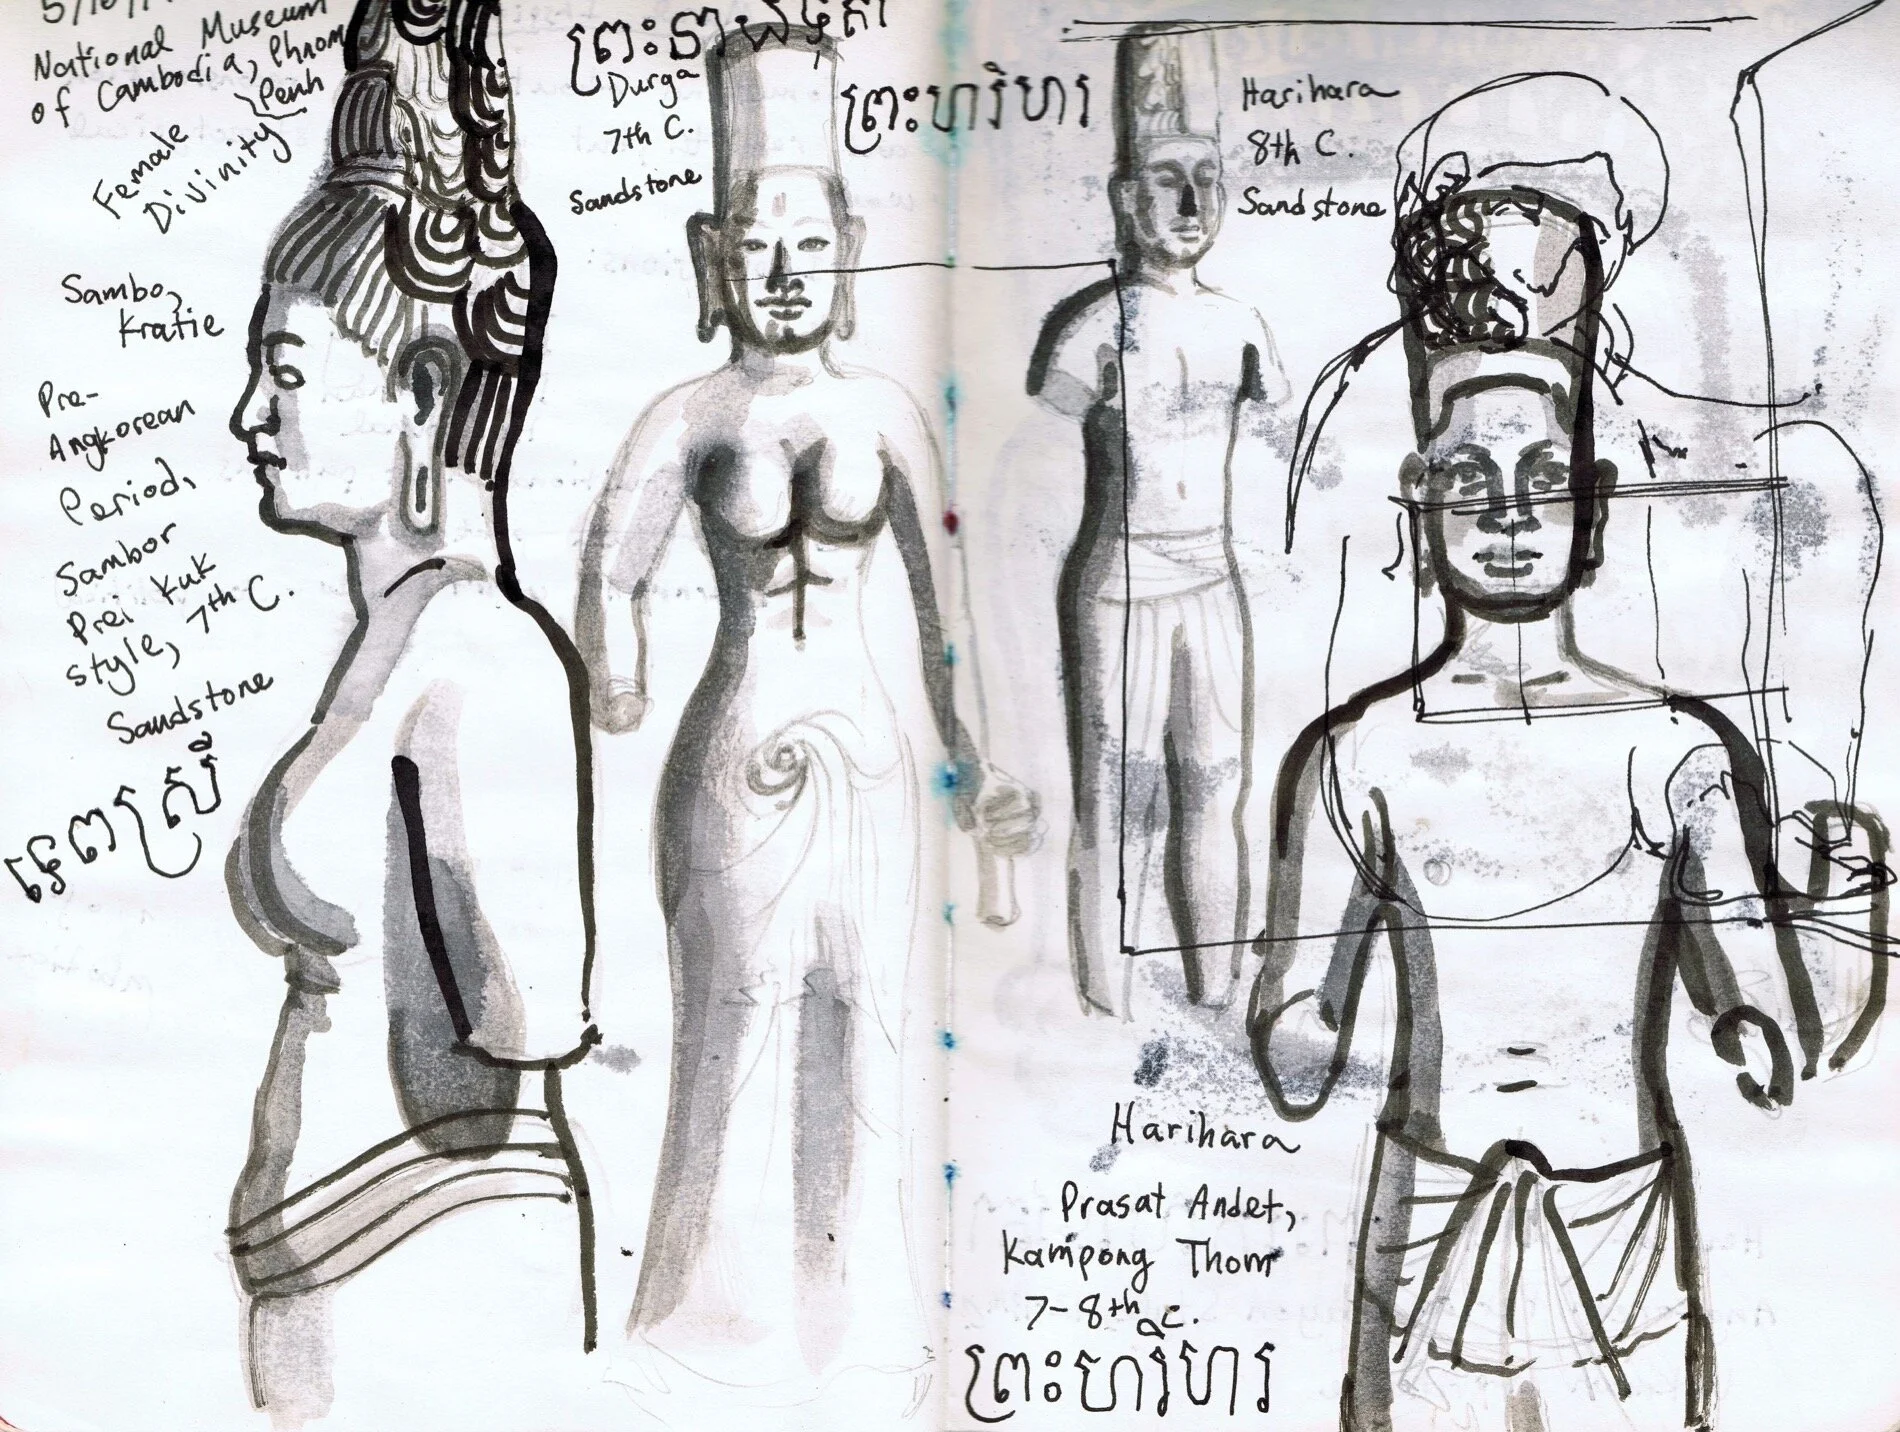 National Museum
of Cambodia, Phnom
Penh
Female
Divinity
Sambo,
Kratie
Pre-
Angkorean
Period,
Sambor
Prei Kuk
style, 7th C.
Sandstone
ទេពស្រី
Durga
7th C.
Sandstone
ព្រះហរិហរ
Harihara
8th C.
Sandstone
Harihara
Prasat Andet,
Kampong Thom
7-8th C.
ព្រះហរិហរ